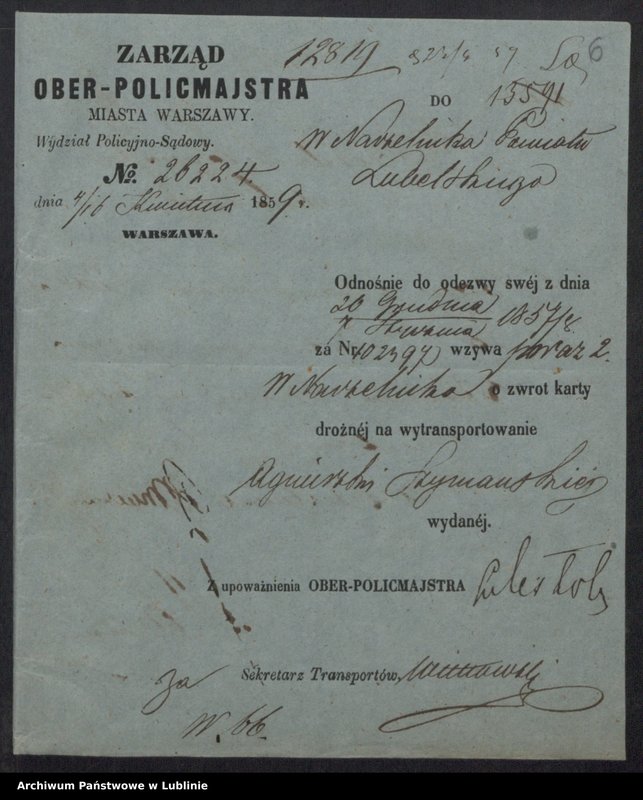 ZARZĄD
OBER-POLICMAJSTRA
MIASTA WARSZAWY.
Wydział Policyjno-Sądowy.
№. 26224
dnia 4/16 Kwietnia 1859 r.
WARSZAWA.
12819
6
DO 15591
W Naczelnika Powiatu
Lubelskiego
Odnośnie do odezwy swéj z dnia
26 Grudnia
7 Stycznia 1857/8
za Nr 102397 wzywa poraz 2.
W Naczelnika o zwrot karty
drożnéj na wytransportowanie
Agnieszki Szymanskiej
wydanéj.
Z upoważnienia OBER-POLICMAJSTRA
Sekretarz Transportów,
za
W. 66.
Archiwum Państwowe w Lublinie